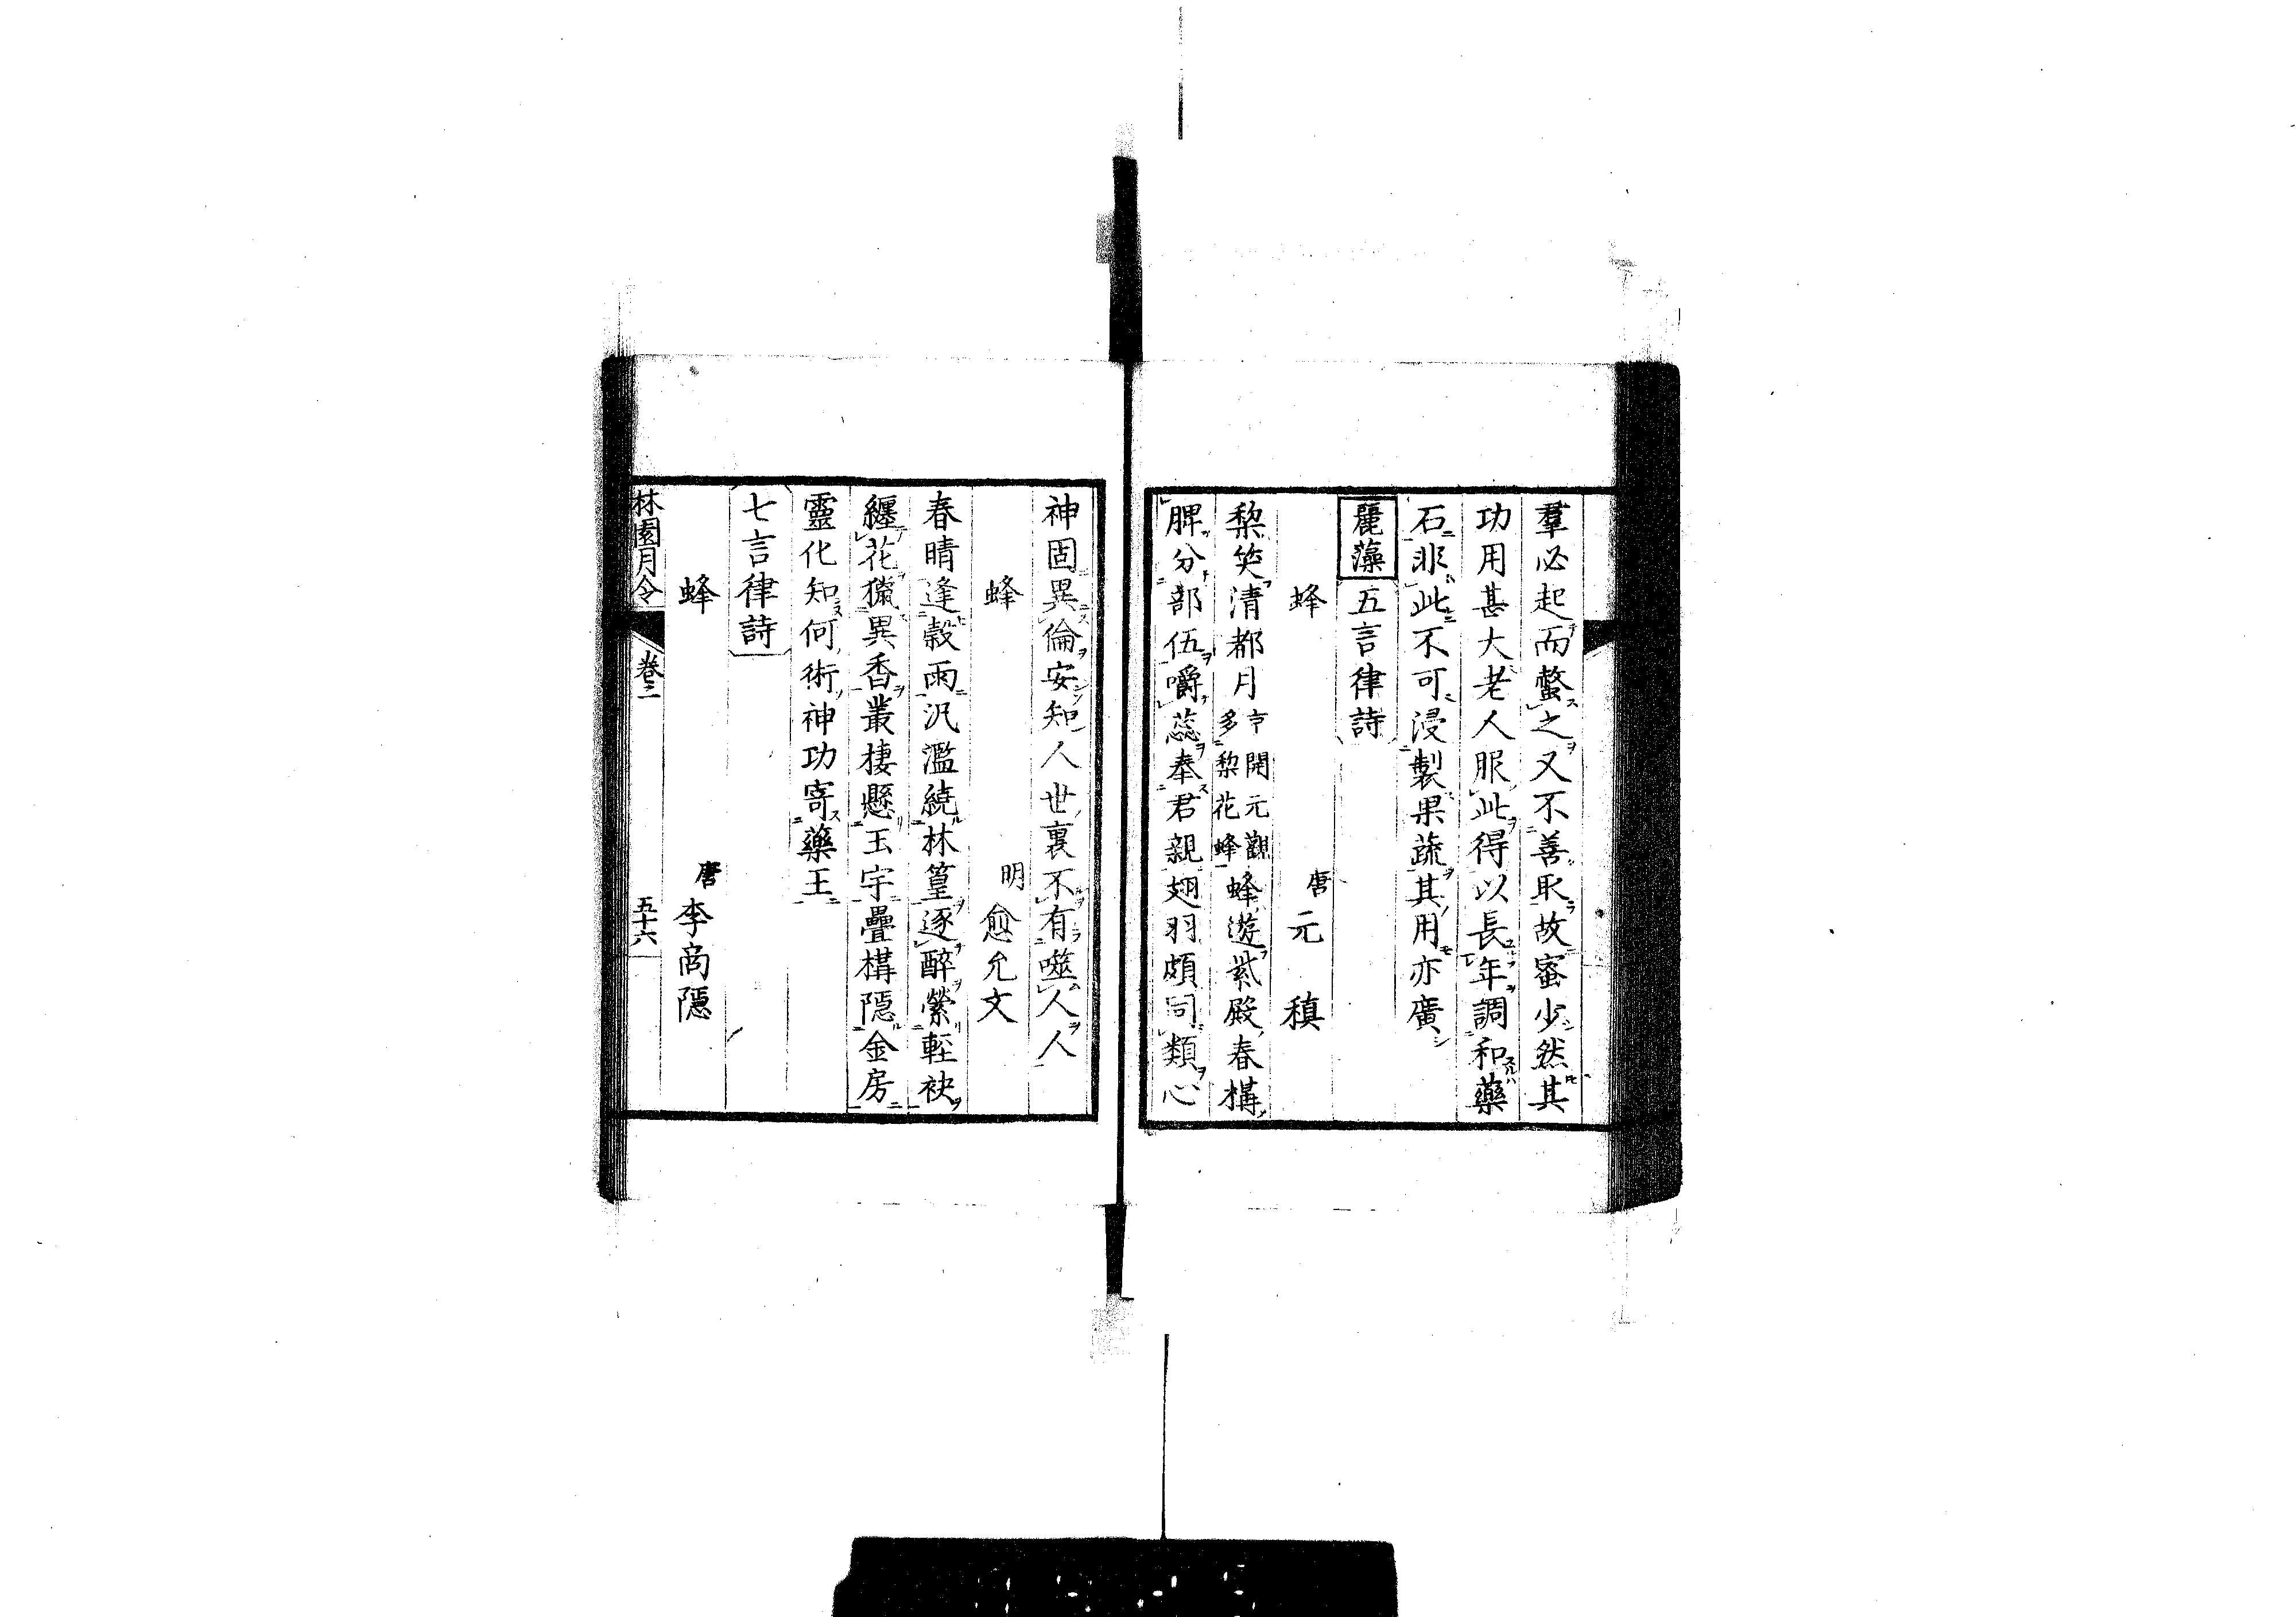 羣必起而螫之又不善取故蜜少然其
功用甚大老人服此得以長年調和藥
石非此不可浸製果蔬其用亦廣
麗藻 五言律詩
蜂 唐 元 稹
梨笑清都月 京開元觀多梨花蜂 蜂遊紫殿春構
脾分部伍嚼蕊奉君親翅羽頗同類心
神固異倫安知人世裏不有噬人人
蜂 明 愈允文
春晴逢穀雨汎濫繞林篁逐醉縈輕袂
纏花獵異香叢棲懸玉宇疊構隱金房
靈化知何術神功寄藥王
七言律詩
蜂 唐 李商隱
林園月令 卷二 五十六